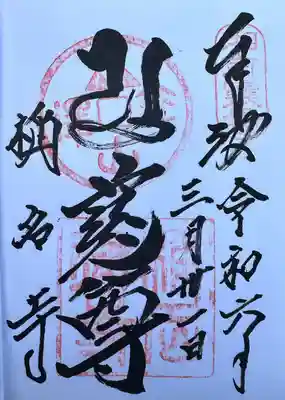 奉拝 令和六年
三月廿一日
慈尊
称名寺